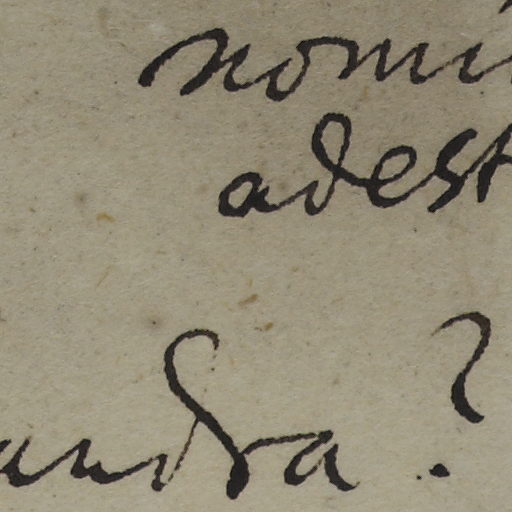 nomi
adest
andra?